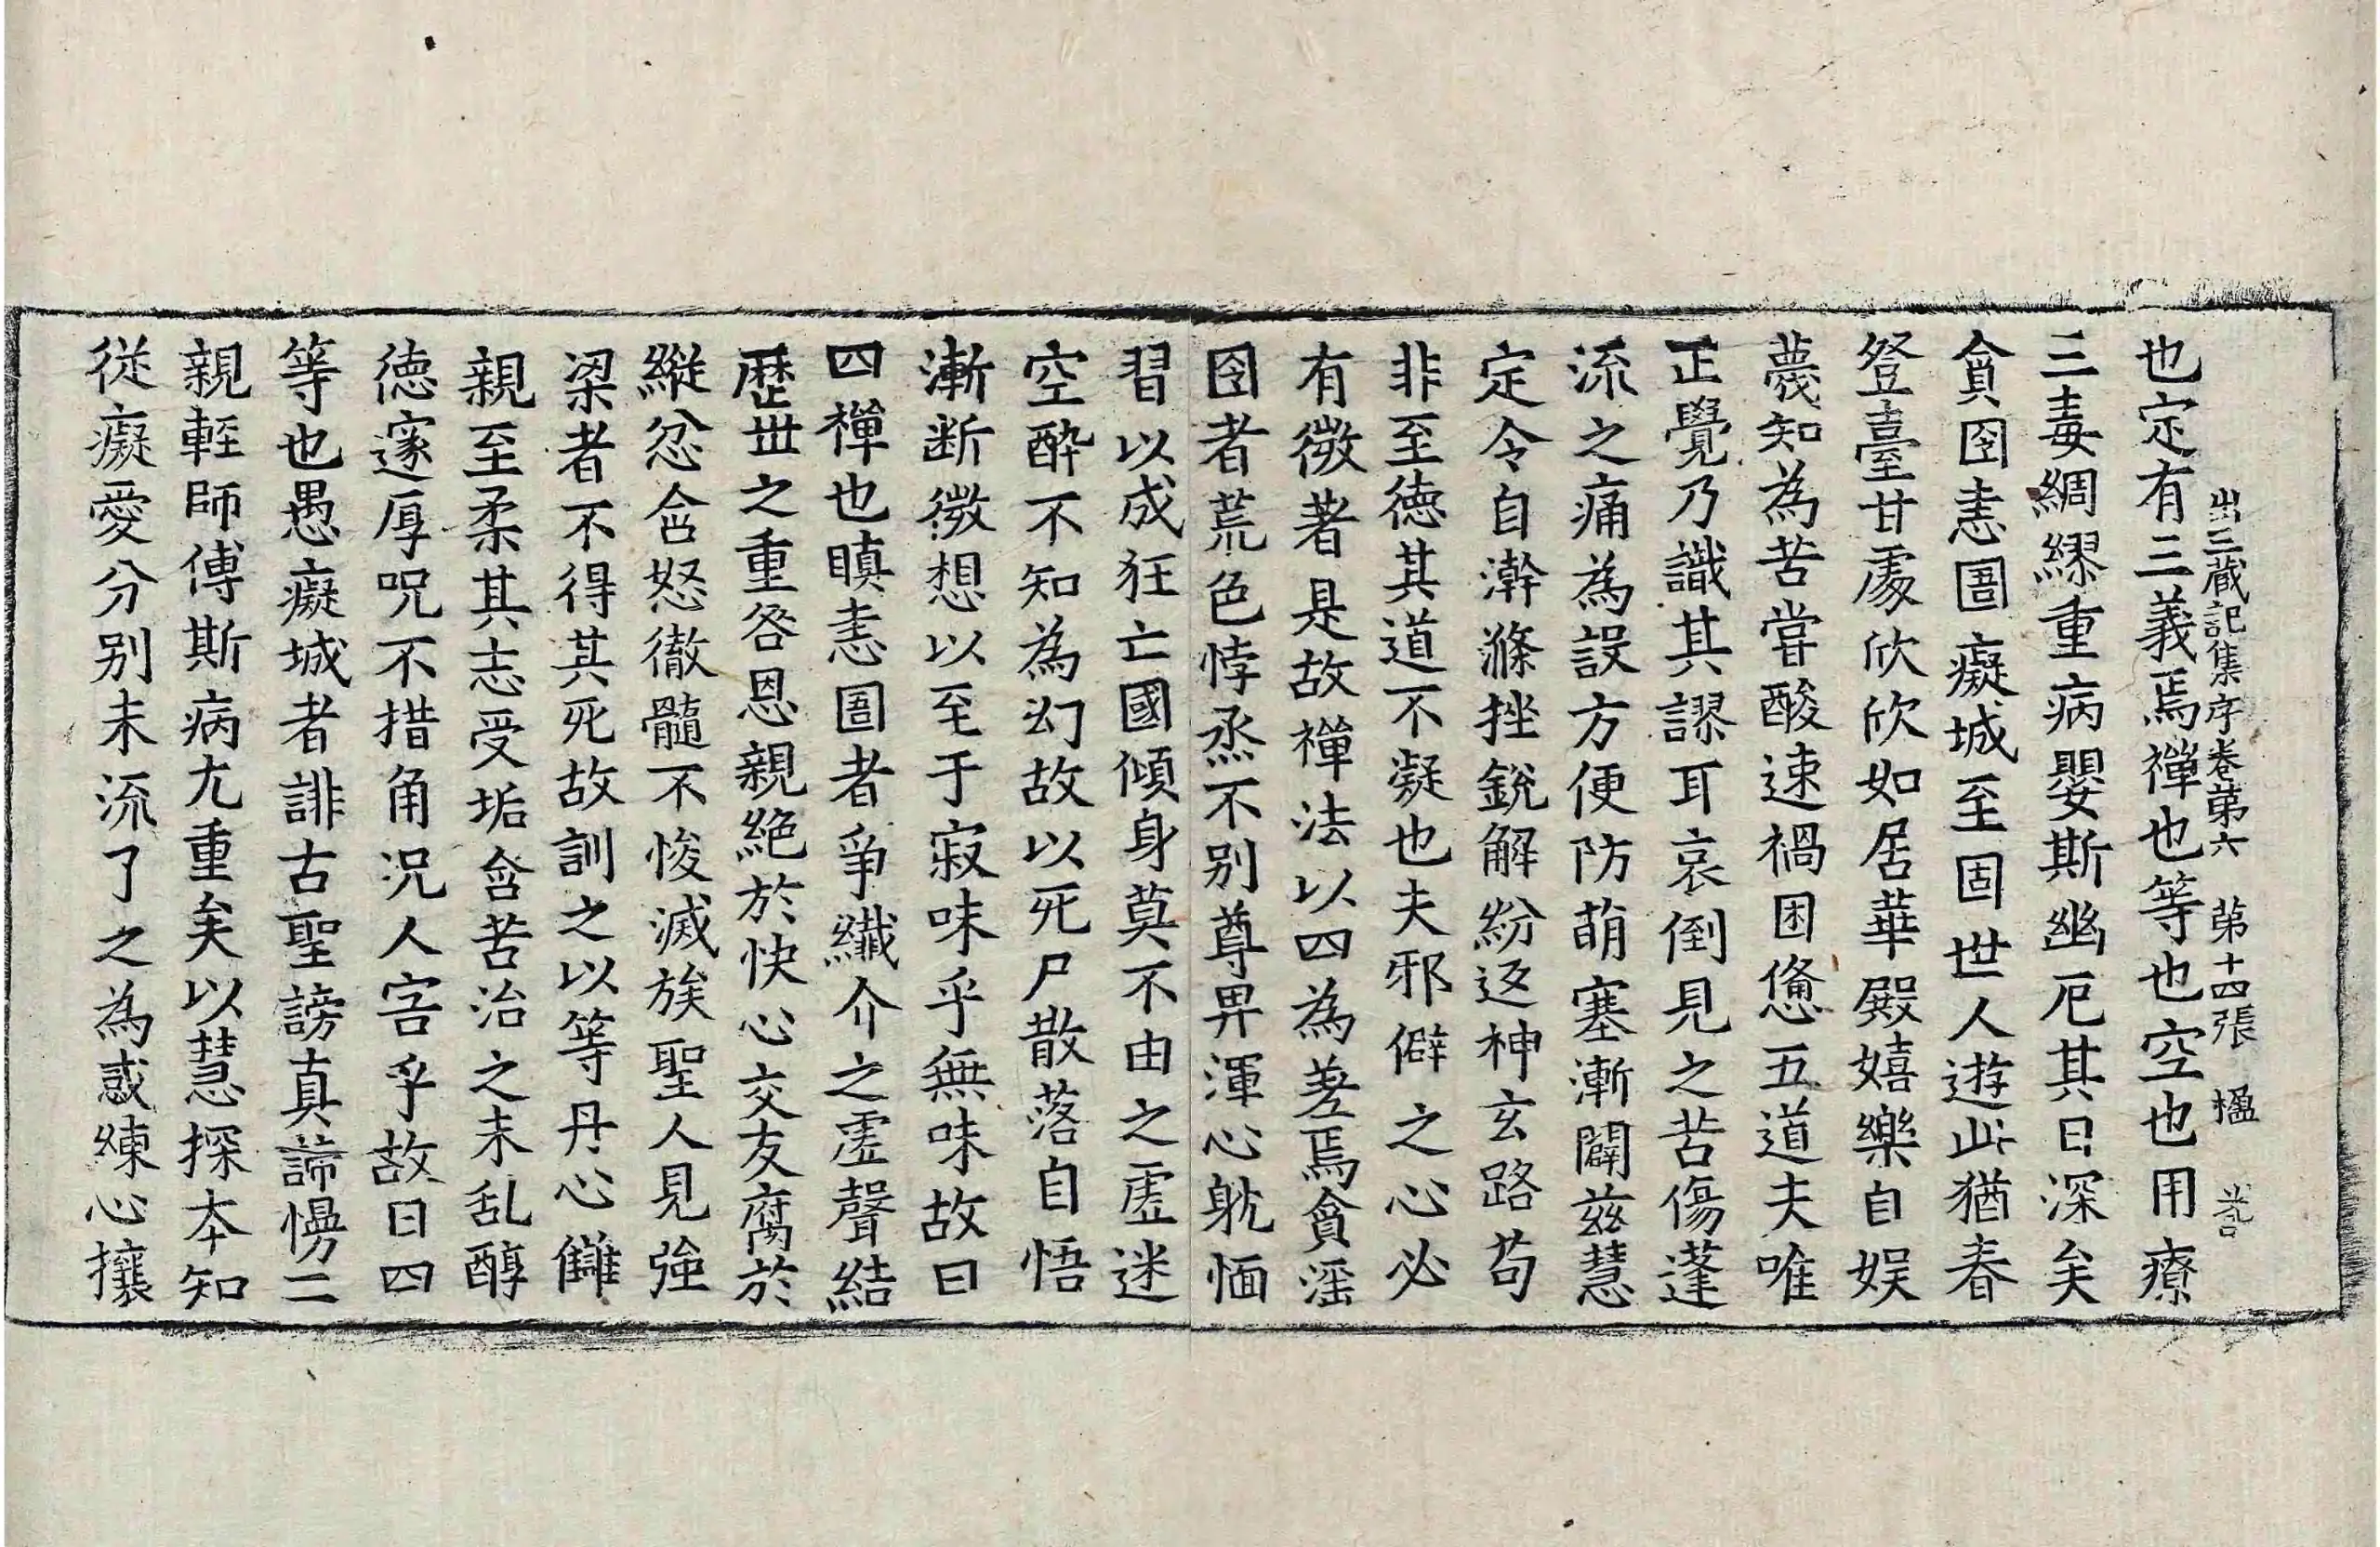 出三藏記集序卷第六　第十四張　楹
也定有三義焉禪也等也空也用療
三毒綢繆重病嬰斯幽厄其日深矣
貪囹恚圄癡城至固世人遊此猶春
登臺甘處欣欣如居華殿嬉樂自娛
蔑知為苦甞酸速禍困憊五道夫唯
正覺乃識其謬耳哀倒見之苦傷蓬
流之痛為設方便防萌塞漸闢茲慧
定令自澣滌挫銳解紛返神玄路苟
非至德其道不凝也夫邪僻之心必
有微著是故禪法以四為差焉貪淫
囹者荒色悖烝不別尊卑渾心躭愐
習以成狂亡國傾身莫不由之虛迷
空醉不知為幻故以死尸散落自悟
漸断微想以至于寂味乎無味故曰
四禪也瞋恚圄者爭纖介之虛聲結
歷世之重咎恩親絕於快心交友腐於
縱忿含怒徹髓不悛滅族聖人見強
梁者不得其死故訓之以等丹心讎
親至柔其志受垢含苦治之未乱醇
德邃厚呪不措角況人害乎故曰四
等也愚癡城者誹古聖謗真諦慢二
親輕師傅斯病尤重矣以慧探本知
從癡愛分別末流了之為惑練心攘